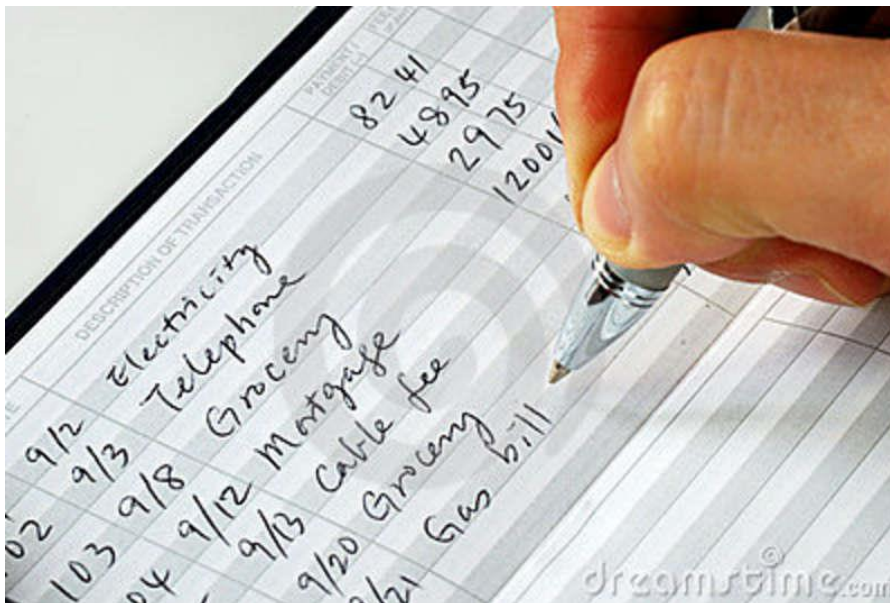 PAYMENT/
DEBIT (-)
DESCRIPTION OF TRANSACTION
9/2 Electricity 82 41
02 9/3 Telephone 48 95
103 9/8 Grocery 29 75
04 9/12 Mortgage 1200
9/13 Cable fee
9/20 Grocery
/21 Gas bill
dreamstime.com